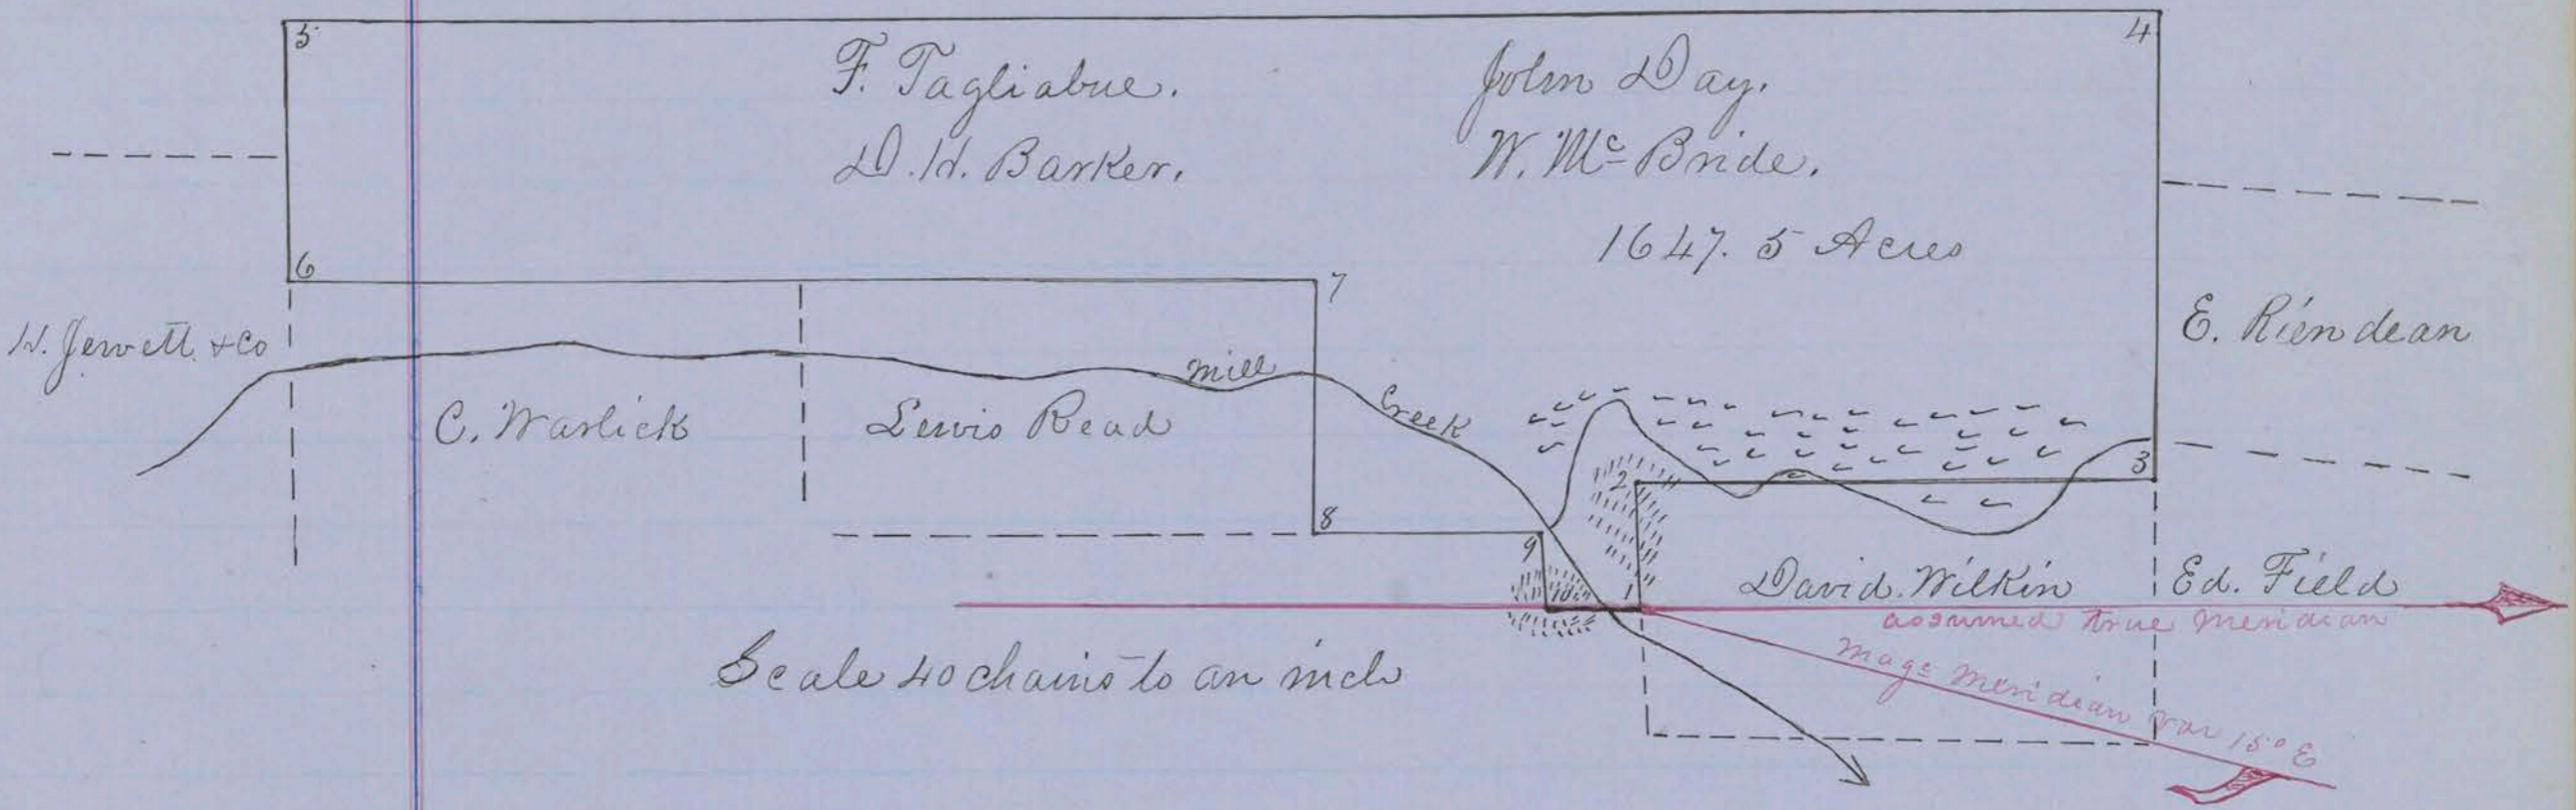 5
4
F. Tagliabue.
John Day.
D. H. Barker.
W. Mc Bride.
1647. 5 Acres
6
7
H. Jewett & Co
E. Riendean
mill Creek
C. Warlick
Lewis Read
3
2
8
9
10
1
David Wilkin
Ed. Field
assumed true meridian
Scale 40 chains to an inch
Magc Meridian var 15° E